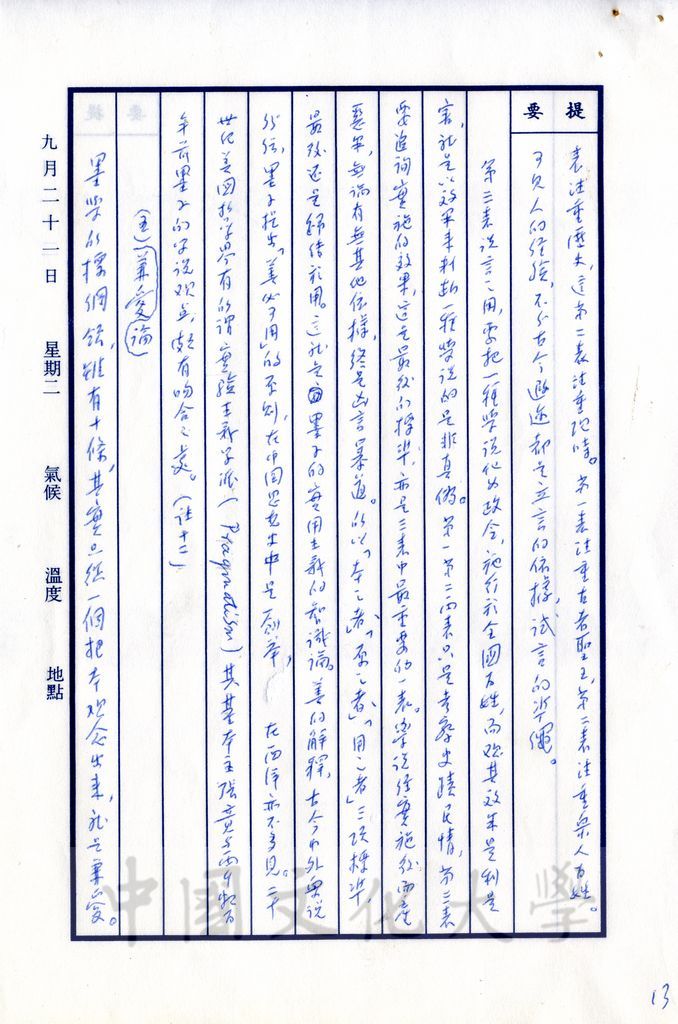 提要
表注重歷史,這第二表注重現時。第一表注重古者聖王,第二表注重眾人百姓。
可見人的經驗,不分古今遐迩都是立言的依據,試言的準繩。
第三表說言之用,要把一種學說化為政令,施行於全國百姓,而觀其效果是利是
害,就是以效果來判斷一種學說的是非真偽。第一第二兩表只是考察史蹟民情,第三表
要追詢實施的效果,這是最後的標準,亦是三表中最重要的一表。學說經實施後而產
惡果,無論有無其他依據,終是凶言暴道。所以「本之者」「原之者」「用之者」三項標準,
最後還是歸結於用。這就是墨子的實用主義的知識論。善的解釋,古今中外眾說
紛紜,墨子提出「善必可用」的原則,在中國思想史中是創舉, 在西洋亦不多見。二十
世紀美國哲學界有所謂實驗主義學派(Pragmatism)其基本主張竟與兩千數百
年前墨子的學說觀點,頗有吻合之處。(註十二)
(五)兼愛論
墨學的標綱領,雖有十條,其實只從一個根本觀念出來,就是兼愛。
九月二十一日 星期二 氣候 溫度 地點
中國文化大學
13